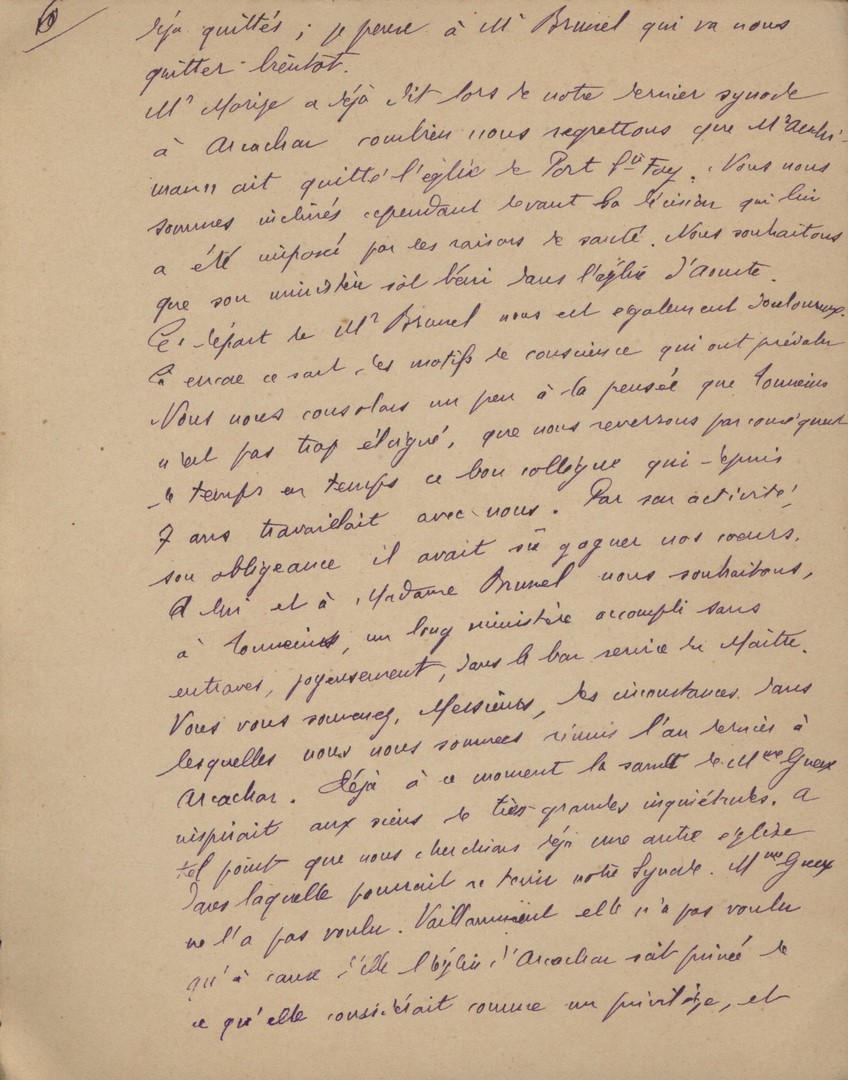 6
déjà quittés ; je pense à Mr Brunel qui va nous
quitter bientôt.
Mr Morize a déjà dit lors de notre dernier synode
à Arcachon combien nous regrettons que Mr
mann ait quitté l'église de Port Ste Foy. Nous nous
sommes inclinés cependant devant la décision qui lui
a été imposé par des raisons de santé. Nous souhaitons
que son ministère soit béni dans l'église d'Aouste.
Le départ de Mr Brunel nous est egalement douloureux.
Là encore ce sont des motifs de conscience qui ont prévalu
Nous nous consolons un peu à la pensée que Tonneins
n'est pas trop éloigné, que nous reverrons par conséquent
de temps en temps ce bon collègue qui depuis
7 ans travaillait avec nous. Par son activité,
son obligeance il avait su gagner nos coeurs.
A lui et à Madame Brunel nous souhaitons,
à Tonneins, un long ministère accompli sans
entraves, joyeusement, dans le bon service du Maître.
Vous vous souvenez, Messieurs, des circonstances dans
lesquelles nous nous sommes réunis l'an dernier à
Arcachon. Déjà à ce moment la santé de Mme Gueux
inspirait aux siens de très grandes inquiétudes. A
tel point que nous cherchions déjà une autre église
dans laquelle pourrait se tenir notre Synode. Mme Gueux
ne l'a pas voulu. Vaillamment elle n'a pas voulu
qu'à cause d'elle l'église d'Arcachon soit privée de
ce qu'elle considérait comme un privilège, et